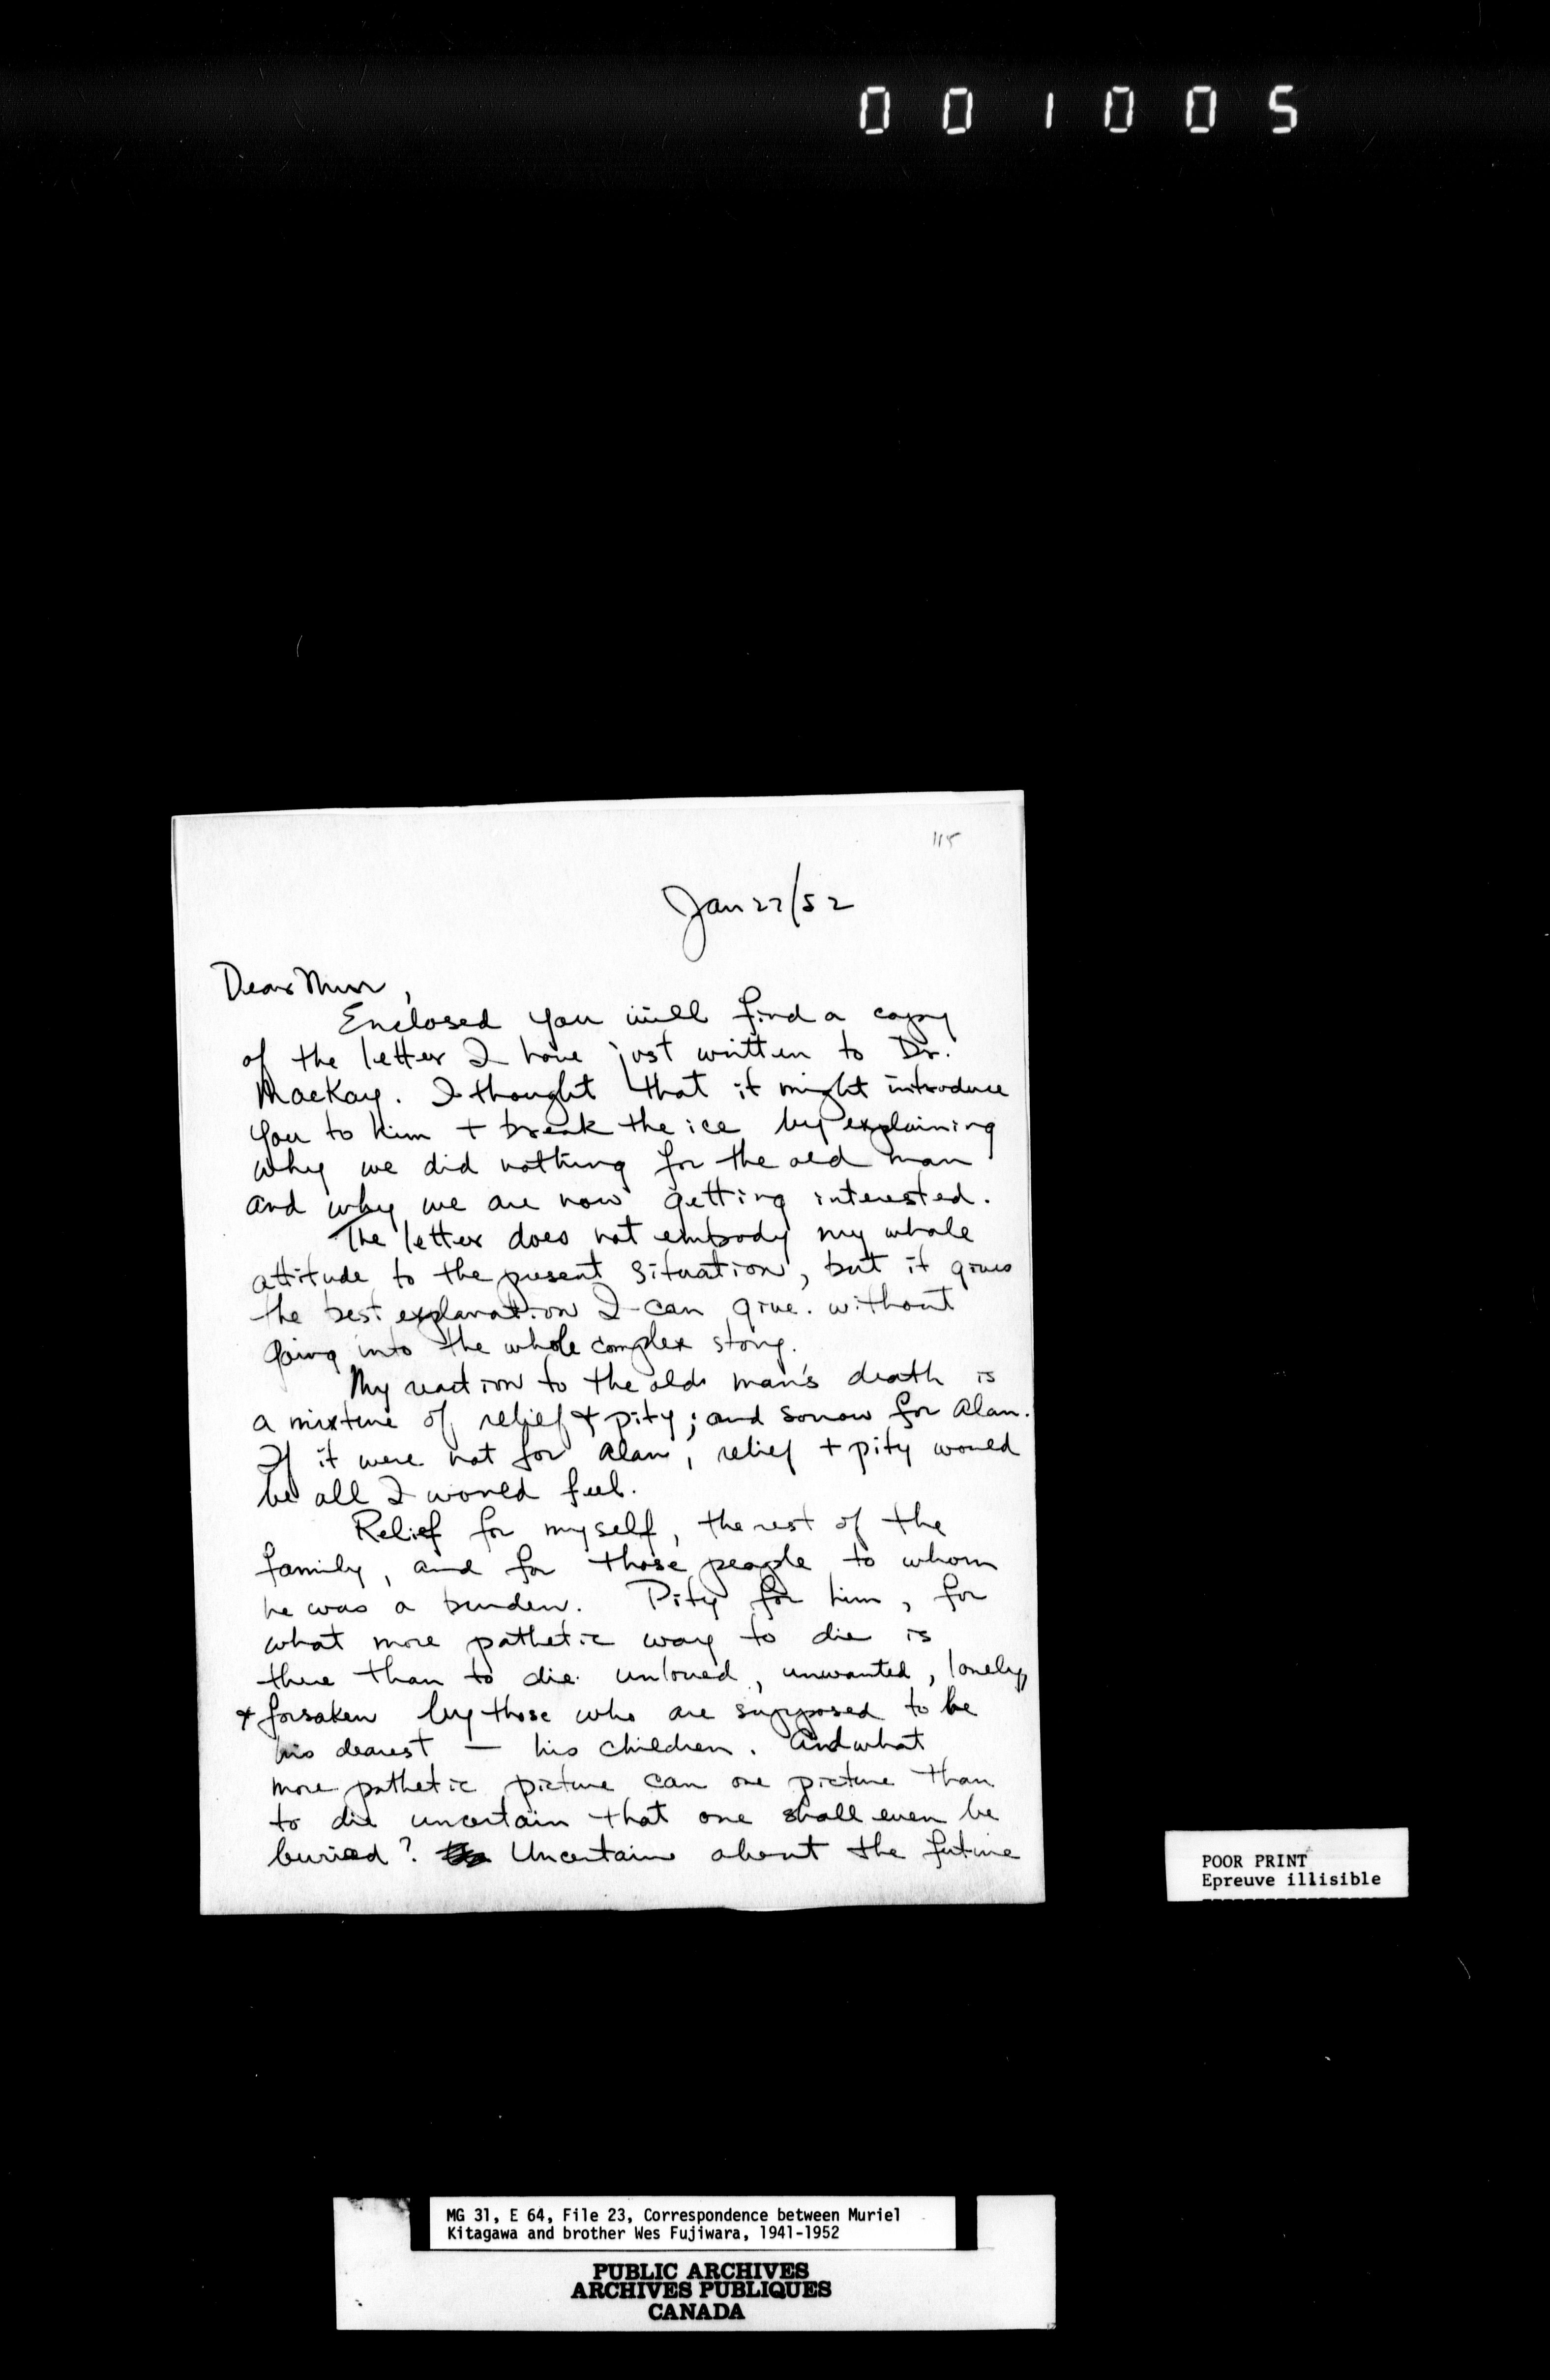 001005
115
Jan 27/52
Dear Mur,
Enclosed you will find a copy
of the letter I have just written to Dr.
MacKay. I thought that it might introduce
you to him + break the ice by explaining
why we did nothing for the old man
and why we are now getting interested.
The letter does not embody my whole
attitude to the present situation, but it gives
the best explanation I can give. without
going into the whole complex story.
My reaction to the old man's death is
a mixture of relief & pity; and sorrow for Alan.
If it were not for Alan, relief + pity would
be all I would feel.
Relief for myself, the rest of the
family, and for those people to whom
he was a burden. Pity for him, for
what more pathetic way to die is
there than to die unloved, unwanted, lonely,
& forsaken by those who are supposed to be
his dearest — his children. And what
more pathetic picture can one picture than
to die uncertain that one shall even be
buried? Uncertain about the future
POOR PRINT
Epreuve illisible
MG 31, E 64, File 23, Correspondence between Muriel
Kitagawa and brother Wes Fujiwara, 1941-1952
PUBLIC ARCHIVES
ARCHIVES PUBLIQUES
CANADA